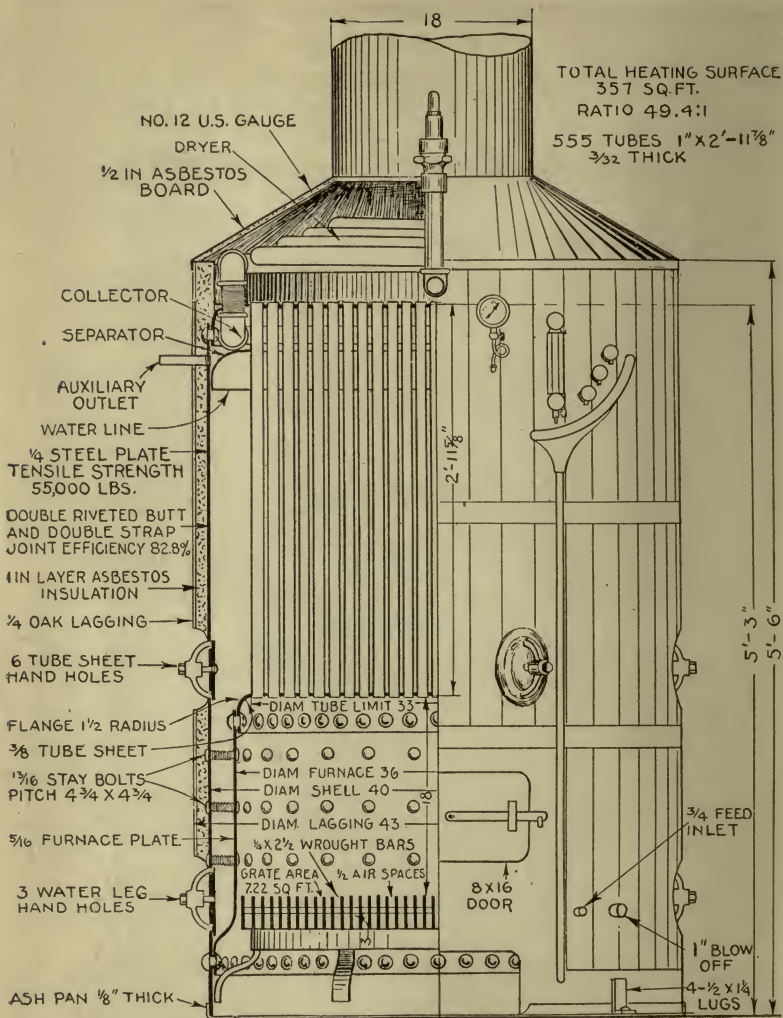 18
TOTAL HEATING SURFACE
357 SQ.FT.
RATIO 49.4:1
555 TUBES 1"X2'-11⅞"
3/32 THICK
NO. 12 U.S. GAUGE
DRYER
½ IN ASBESTOS
BOARD
COLLECTOR
SEPARATOR
AUXILIARY
OUTLET
WATER LINE
¼ STEEL PLATE
TENSILE STRENGTH
55,000 LBS.
DOUBLE RIVETED BUTT
AND DOUBLE STRAP
JOINT EFFICIENCY 82.8%
1 IN LAYER ASBESTOS
INSULATION
¼ OAK LAGGING
6 TUBE SHEET
HAND HOLES
FLANGE 1½ RADIUS
⅜ TUBE SHEET
13/16 STAY BOLTS
PITCH 4¾ X 4¾
5/16 FURNACE PLATE
3 WATER LEG
HAND HOLES
ASH PAN ⅛" THICK
2'-11⅝"
DIAM TUBE LIMIT 33
DIAM FURNACE 36
DIAM SHELL 40
18
DIAM. LAGGING 43
¼ X 2½ WROUGHT BARS
GRATE AREA
7.22 SQ FT.
½ AIR SPACES
3
8X16
DOOR
¾ FEED
INLET
1" BLOW
OFF
4-½ X 1¼
LUGS
5'-3"
5'-6"